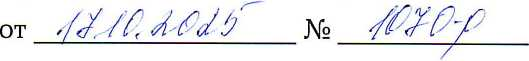 от 17.10.2025 № 1070-р